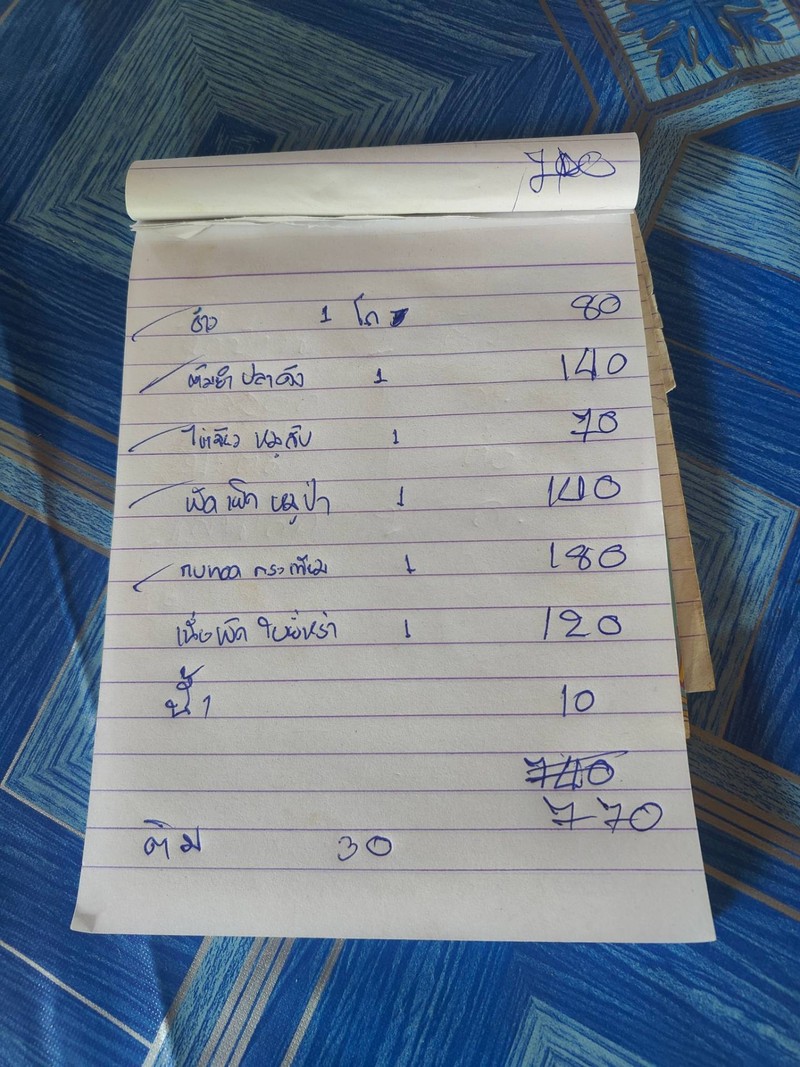 ข้าว 1 โถ 80
ต้มยำ ปลาคัง 1 140
ไข่เจียว หมูสับ 1 70
ผัด เผ็ด หมูป่า 1 140
กบทอด กระเทียม 1 180
ผัด ใบยี่หร่า 1 120
น้ำ 1 10
740
770
30